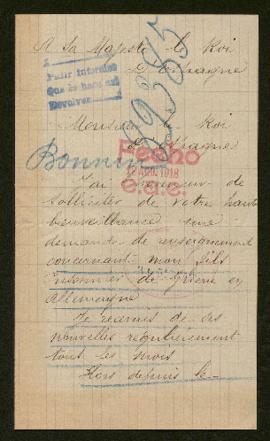 A Sa Majesté le Roi
d'Espagne
Pedir informes
que se hace así
Devolver
69385
Monsieur le Roi
Bonnin
Fecho
AVR. 1918
J'ai l'honneur de
solliciter de votre haute
bienveillance une
demande de renseignement
concernant mon fils
de guerre en
Allemagne
Je recevais de ses
nouvelles régulièrement
tout les mois
Hors depuis le